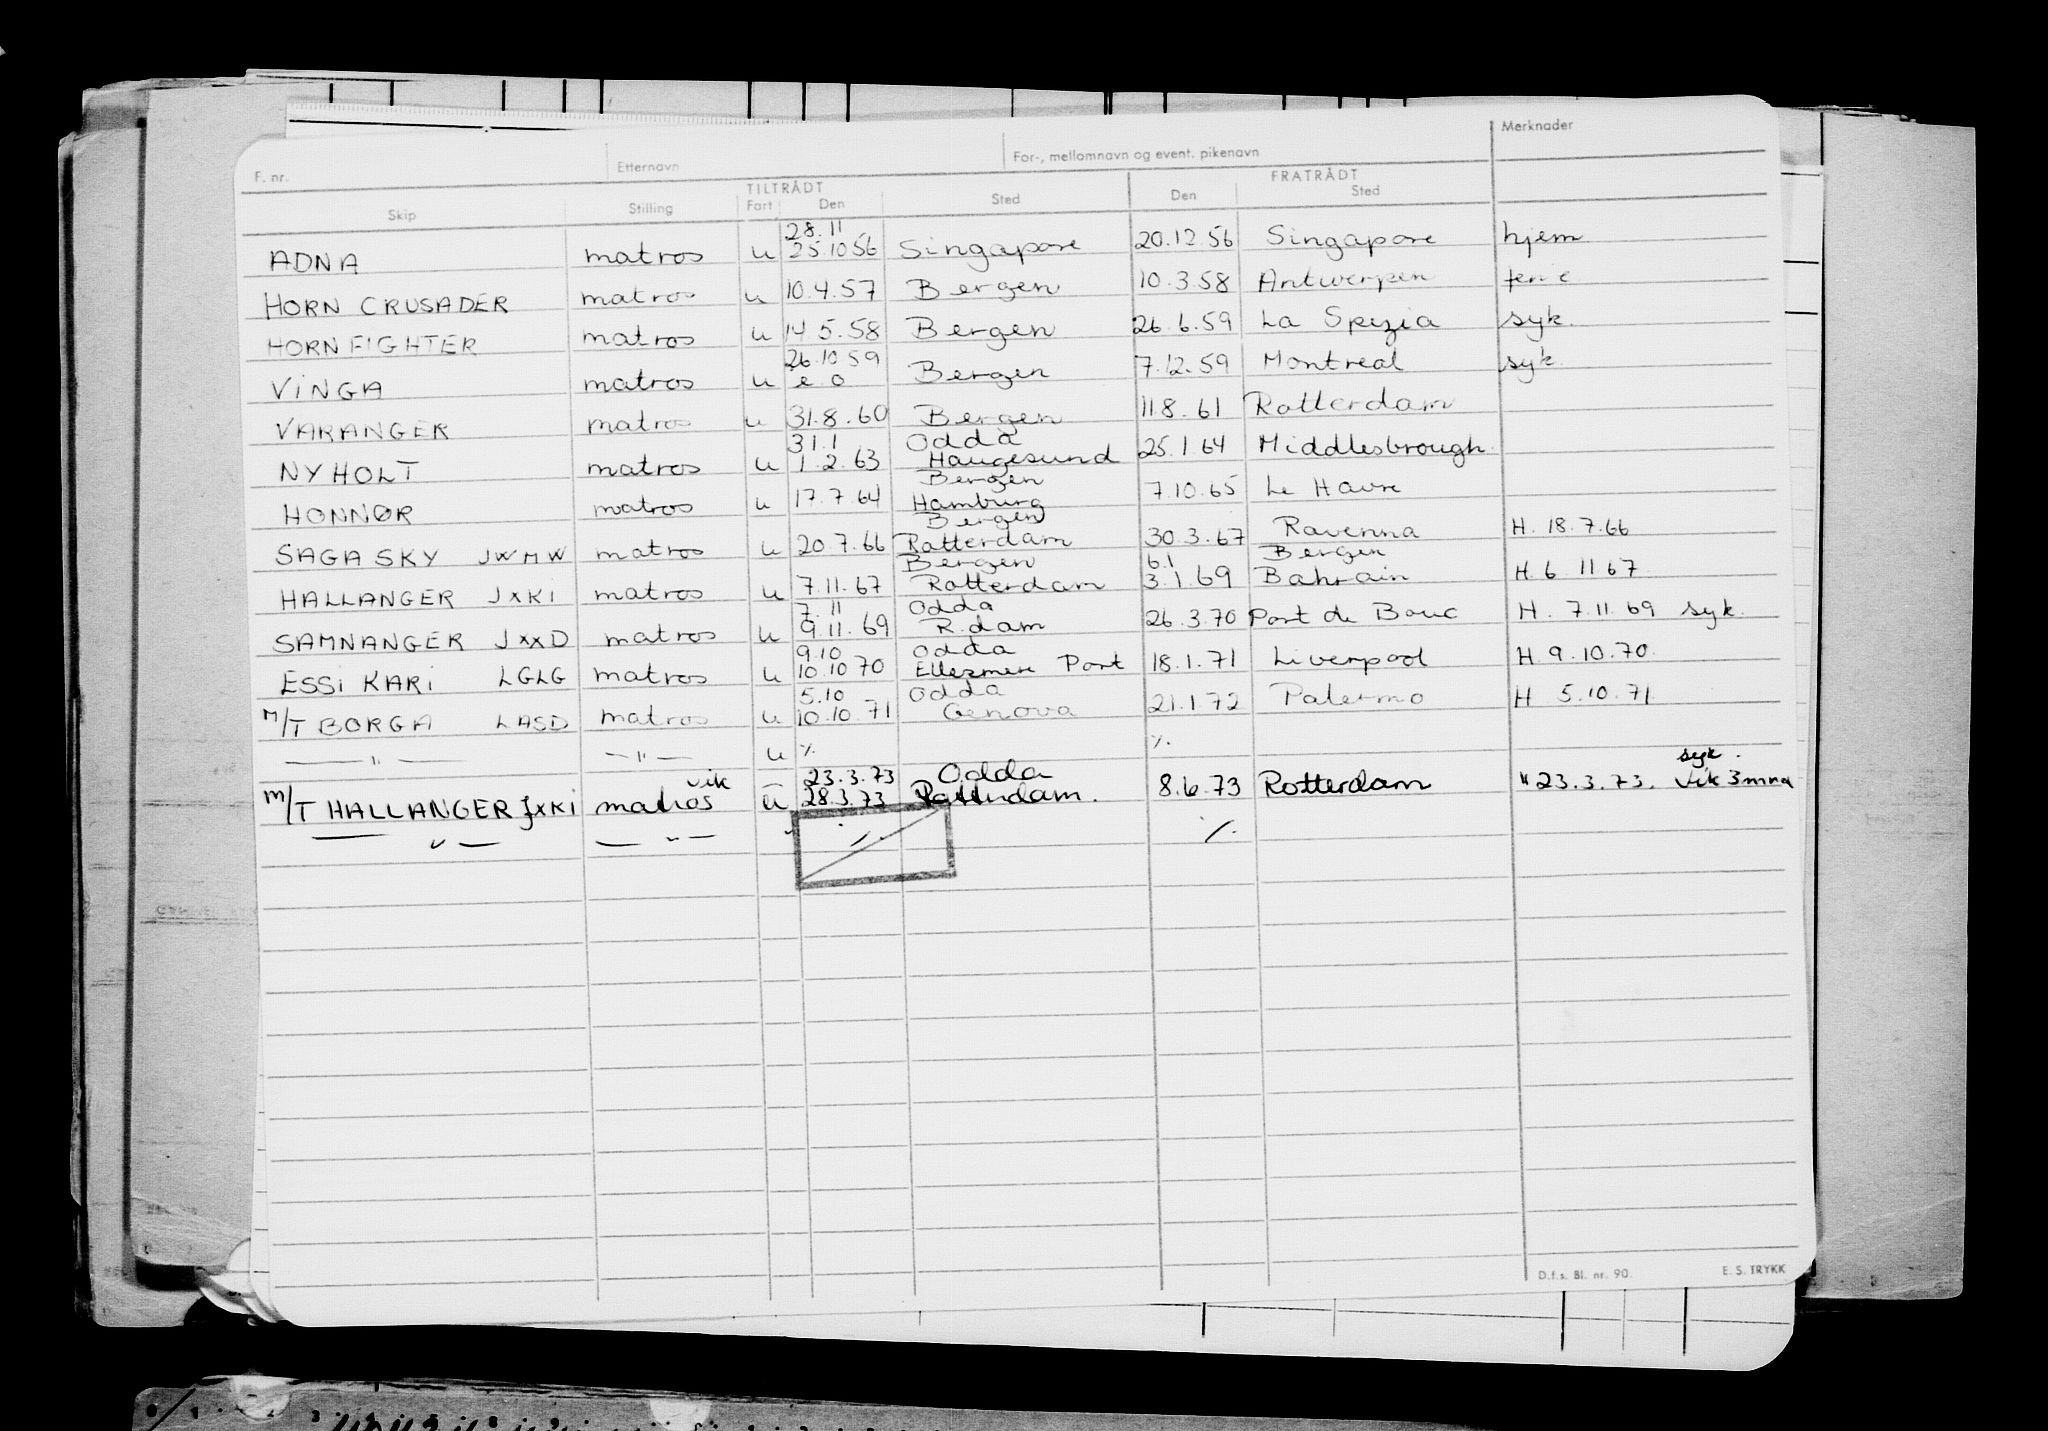 F. nr. Etternavn For-, mellomnavn og event. pikenavn Merknader
TILTRÅDT FRATRÅDT
Skip Stilling Fart Den Sted Den Sted
28.11
ADNA matros u 25.10 56 Singapore 20.12.56 Singapore hjem
HORN CRUSADER matros u 10.4.57 Bergen 10.3.58 Antwerpen ferie
HORN FIGHTER matros u 14 5.58 Bergen 26.6.59 La Spezia syk.
26.10 59
VINGA matros u e.o Bergen 7.12.59 Montreal syk.
VARANGER matros u 31.8.60 Bergen 11.8.61 Rotterdam
31.1 Odda
NYHOLT matros u 1.2.63 Haugesund 25.1 64 Middlesbrough
Bergen
HONNØR matros u 17.7.64 Hamburg 7.10.65 Le Havre
Bergen
SAGA SKY JWMW matros u 20.7.66 Rotterdam 30.3.67 Ravenna H. 18.7.66
Bergen 6.1 Bergen
HALLANGER JXKI matros u 7.11.67 Rotterdam 3.1.69 Bahrain H. 6 11 67
7.11 Odda
SAMNANGER JXXD matros u 9.11.69 R.dam 26.3.70 Port de Bouc H. 7.11 69 syk.
9.10 Odda
ESSI KARI LGLG matros u 10.10 70 Ellesmere Port 18.1.71 Liverpool H 9.10.70.
5.10 Odda
M/T BORGA LASD matros u 10.10.71 Genova 21.1.72 Palermo H 5.10.71
— " — — " — u ·/. ·/.
vik 23.3.73 Odda syk.
M/T HALLANGER JXKI matros u 28.3.73 Rotterdam. 8.6.73 Rotterdam " 23.3.73. Vik 3mna
— " — — " — " ·/. ·/.
D.f.s. Bl. nr. 90. E. S. TRYKK